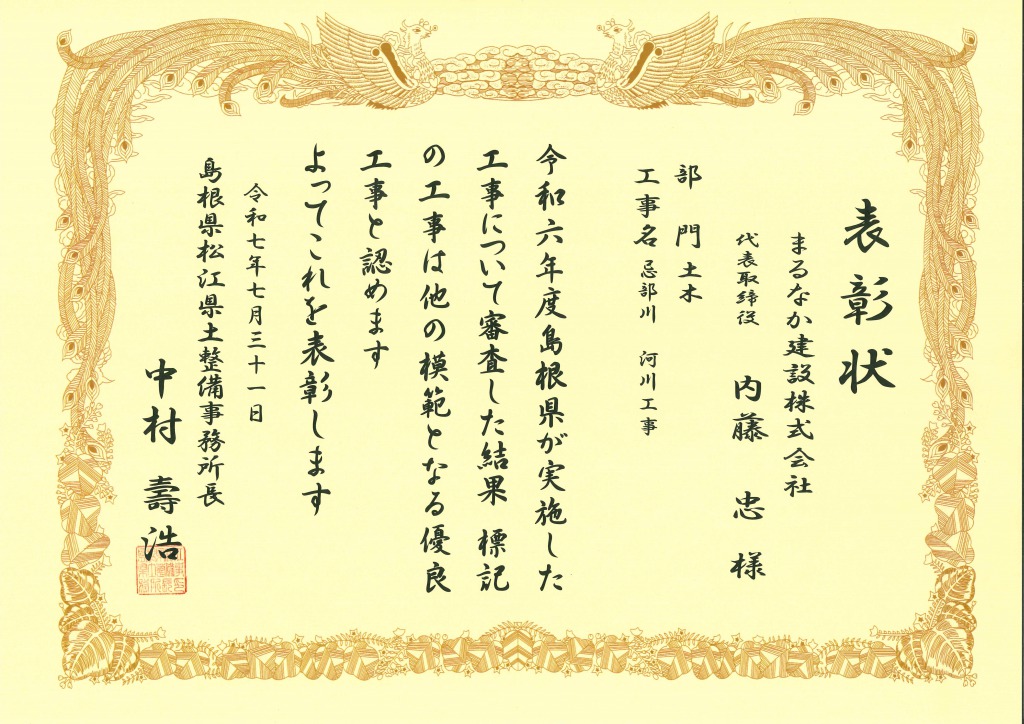 表彰状
まるなか建設株式会社
代表取締役 内藤 忠 様
部 門 土木
工事名 忌部川 河川工事
令和六年度島根県が実施した
工事について審査した結果 標記
の工事は他の模範となる優良
工事と認めます
よってこれを表彰します
令和七年七月三十一日
島根県松江県土整備事務所長
中村 壽浩